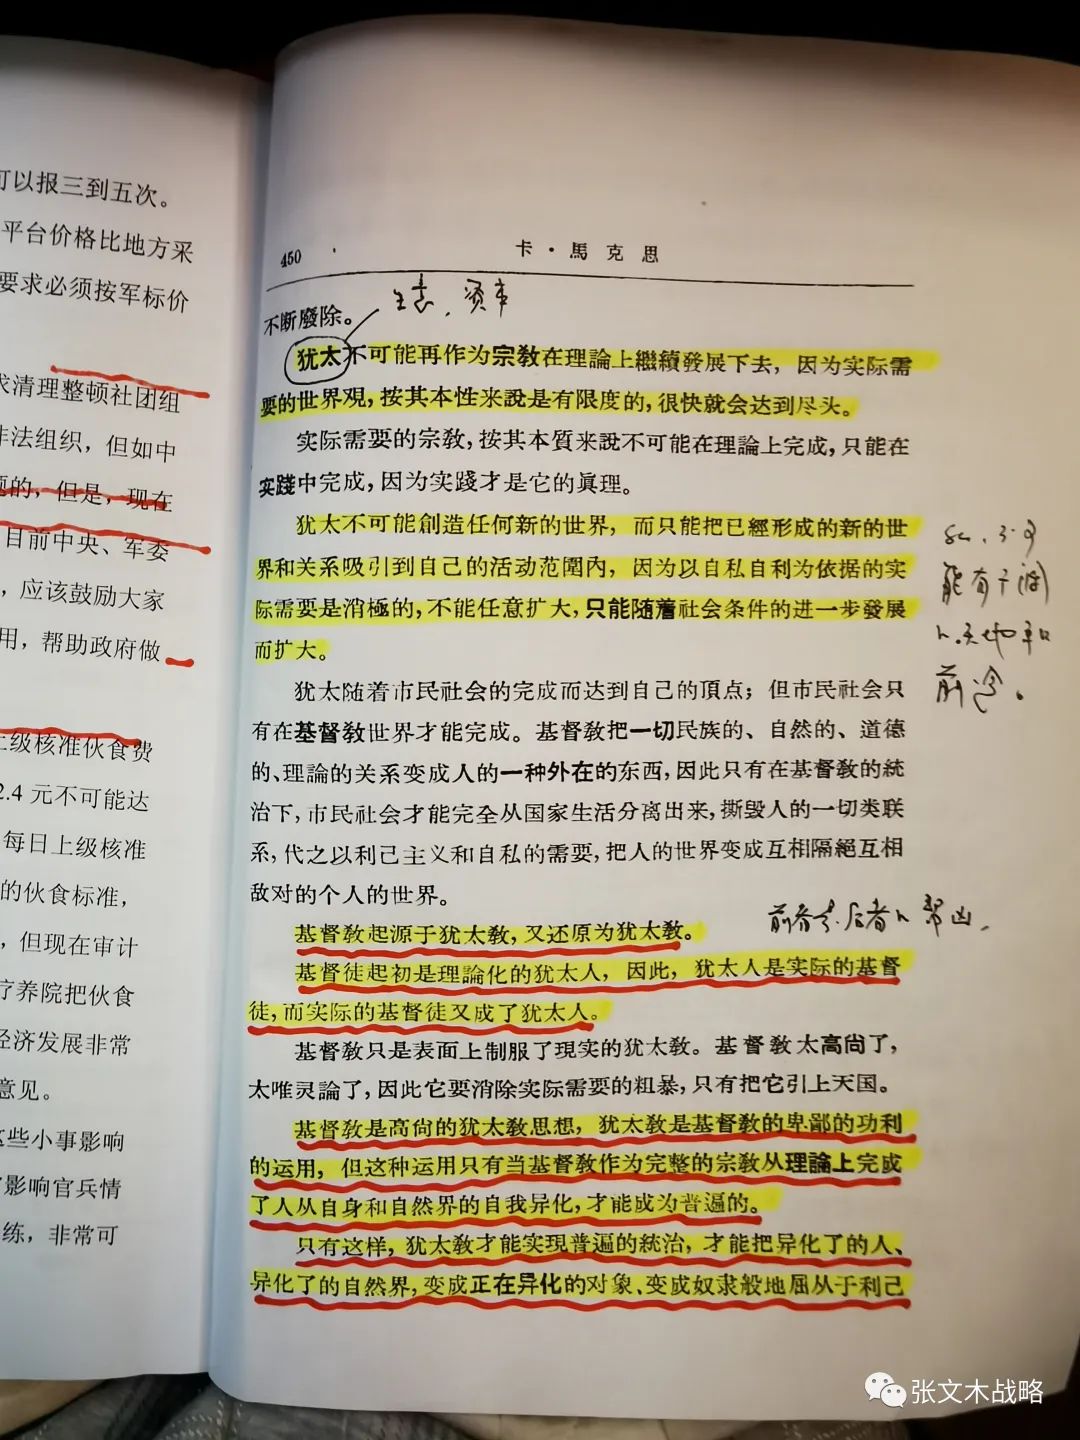 可以报三到五次。
平台价格比地方采
要求必须按军标价
求清理整顿社团组
非法组织，但如中
题的，但是，现在
目前中央、军委
，应该鼓励大家
用，帮助政府做
上级核准伙食费
2.4 元不可能达
每日上级核准
的伙食标准，
，但现在审计
疗养院把伙食
经济发展非常
意见。
这些小事影响
影响官兵情
练，非常可
450
卡·馬克思
不断廢除。
资本
犹太不可能再作为宗敎在理論上繼續發展下去，因为实际需
要的世界观，按其本性来說是有限度的，很快就会达到尽头。
实际需要的宗敎，按其本質来說不可能在理論上完成，只能在
实踐中完成，因为实踐才是它的眞理。
犹太不可能創造任何新的世界，而只能把已經形成的新的世
界和关系吸引到自己的活动范圍內，因为以自私自利为依据的实
际需要是消極的，不能任意扩大，只能随着社会条件的进一步發展
而扩大。
犹太随着市民社会的完成而达到自己的頂点；但市民社会只
有在基督敎世界才能完成。基督敎把一切民族的、自然的、道德
的、理論的关系变成人的一种外在的东西，因此只有在基督敎的統
治下，市民社会才能完全从国家生活分离出来，撕毁人的一切类联
系，代之以利己主义和自私的需要，把人的世界变成互相隔絕互相
敌对的个人的世界。
前者 后者
基督敎起源于犹太敎，又还原为犹太敎。
基督徒起初是理論化的犹太人，因此，犹太人是实际的基督
徒，而实际的基督徒又成了犹太人。
基督敎只是表面上制服了現实的犹太敎。基督敎太高尙了，
太唯灵論了，因此它要消除实际需要的粗暴，只有把它引上天国。
基督敎是高尙的犹太敎思想，犹太敎是基督敎的卑鄙的功利
的运用，但这种运用只有当基督敎作为完整的宗敎从理論上完成
了人从自身和自然界的自我异化，才能成为普遍的。
只有这样，犹太敎才能实現普遍的統治，才能把异化了的人、
异化了的自然界，变成正在异化的对象、变成奴隶般地屈从于利己
张文木战略